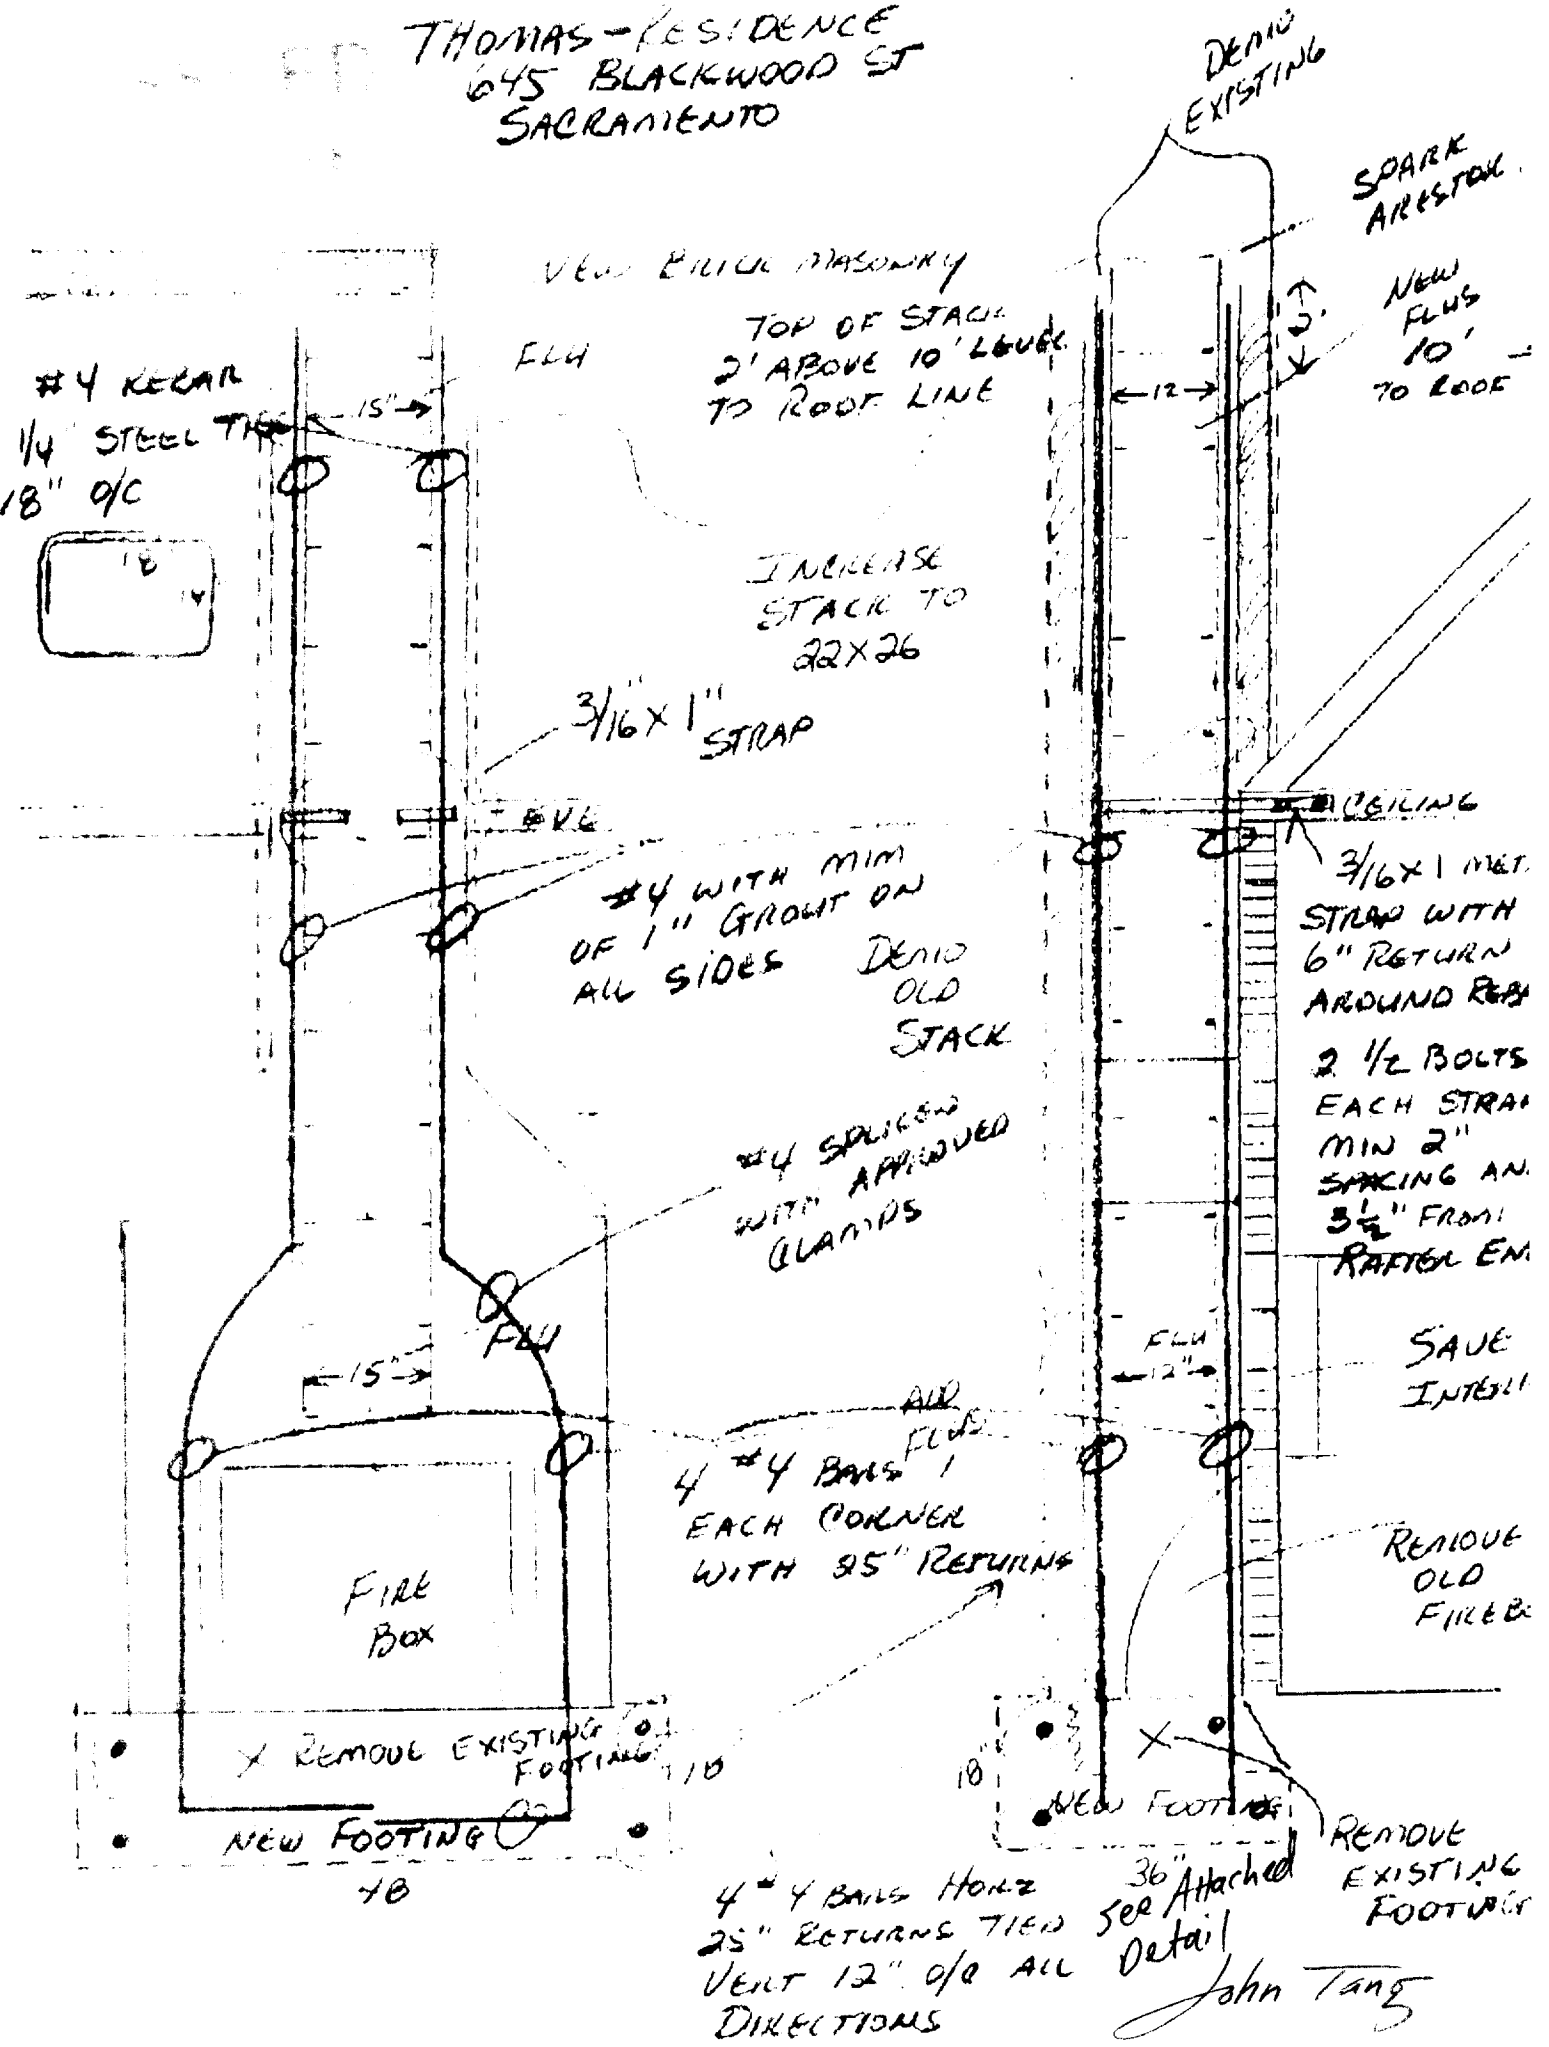 THOMAS-RESIDENCE
645 BLACKWOOD ST
SACRAMENTO
DEMO
EXISTING
SPARK
ARESTOR
NEW BRICK MASONRY
TOP OF STACK
2' ABOVE 10' LEVEL
TO ROOF LINE
FLU
NEW
FLUS
10'
TO ROOF
2'
#4 REBAR
1/4" STEEL TIES
18" O/C
15"
12
18
INCREASE
STACK TO
22X26
3/16 X 1"
STRAP
EVE
CEILING
#4 WITH MIM
OF 1" GROUT ON
ALL SIDES
DEMO
OLD
STACK
3/16 X 1 MET.
STRAP WITH
6" RETURN
AROUND REBA
2 1/2 BOLTS
EACH STRAP
MIN 2"
SPACING AN
3 1/2" FROM
RAFTER EN
#4 SPLICED
WITH APPROVED
CLAMPS
FLU
15"
FLU
12"
SAVE
INTERI
ADD
FLUS
4 #4 BARS 1
EACH CORNER
WITH 25" RETURNS
FIRE
BOX
REMOVE
OLD
FIREBO
X REMOVE EXISTING
FOOTING
18
NEW FOOTING
48
X
18"
NEW FOOTING
36"
REMOVE
EXISTING
FOOTING
4 #4 BARS HORZ
25" RETURNS TIED
VERT 12" O/C ALL
DIRECTIONS
See Attached
Detail
John Tang